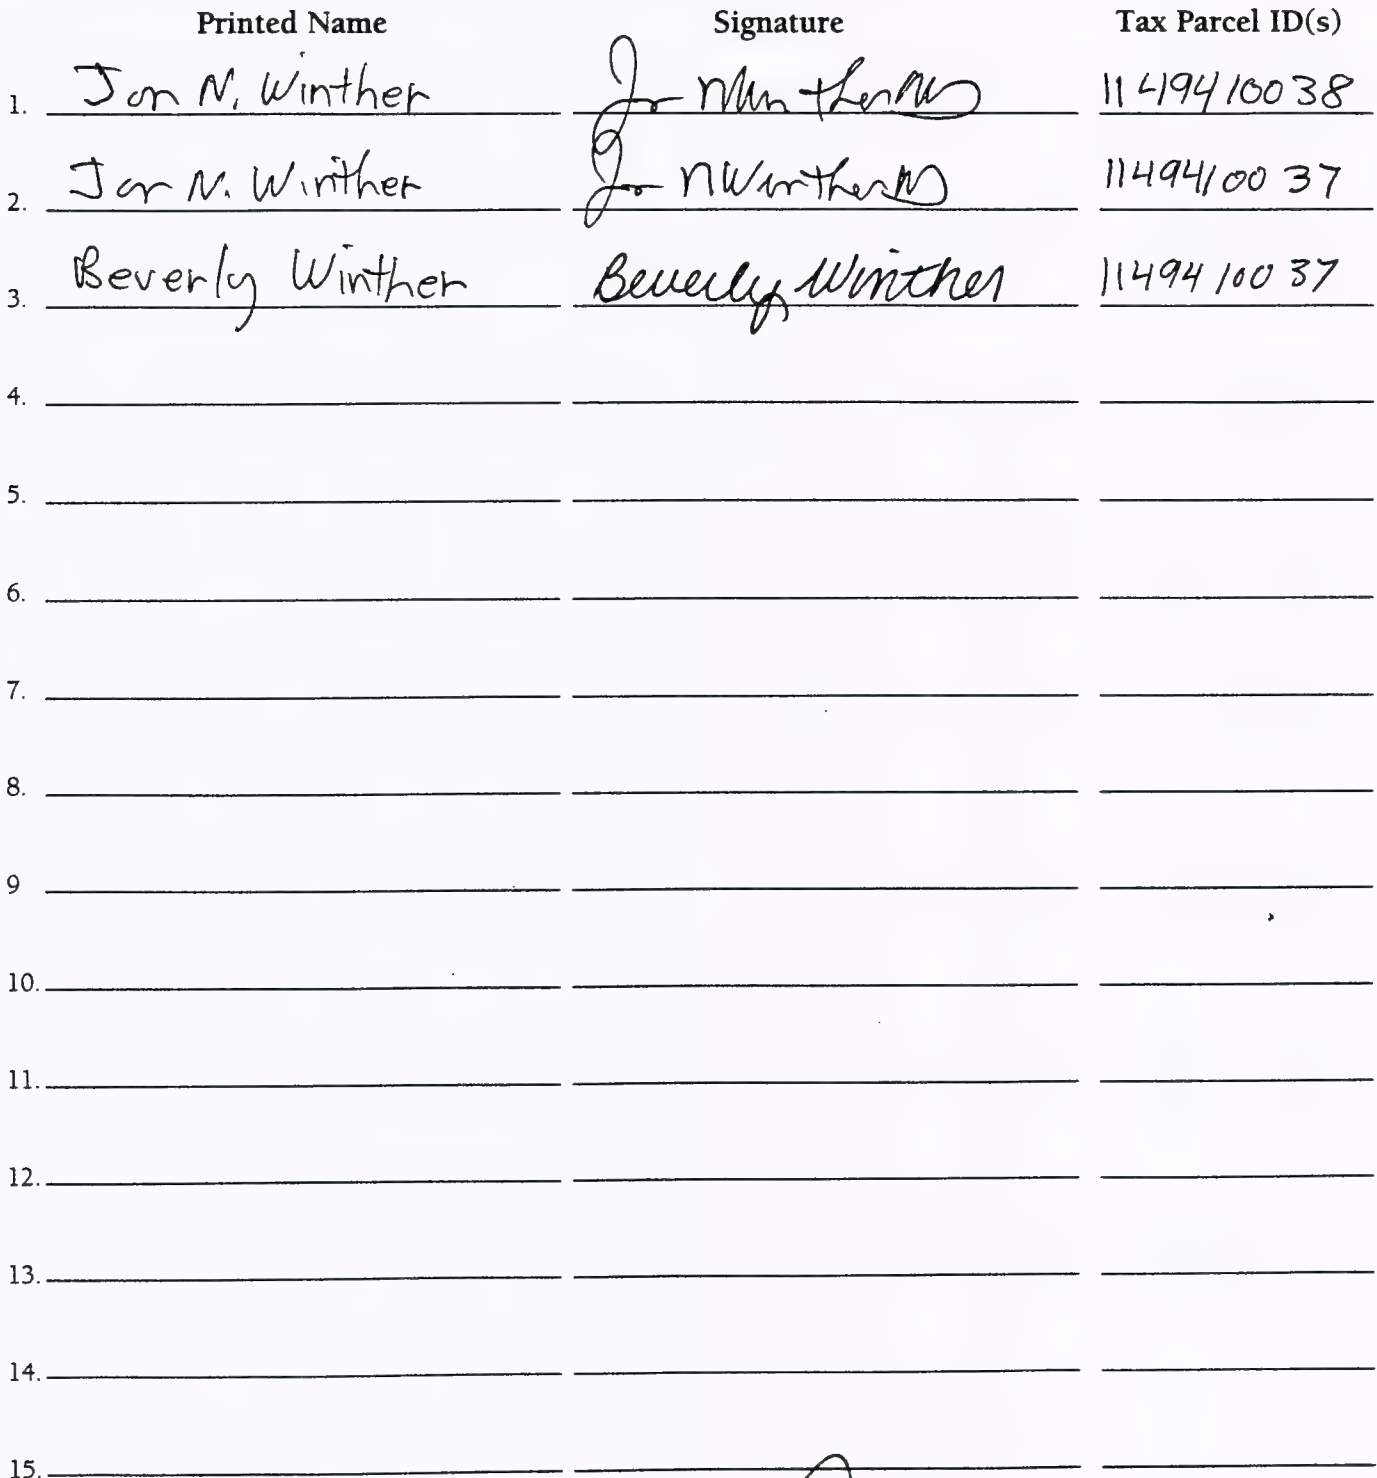 Printed Name Signature Tax Parcel ID(s)
1. Jon N. Winther Jon N Winther MD 1149410038
2. Jon N. Winther Jon N Winther MD 1149410037
3. Beverly Winther Beverly Winther 1149410037
4.
5.
6.
7.
8.
9
10.
11.
12.
13.
14.
15.